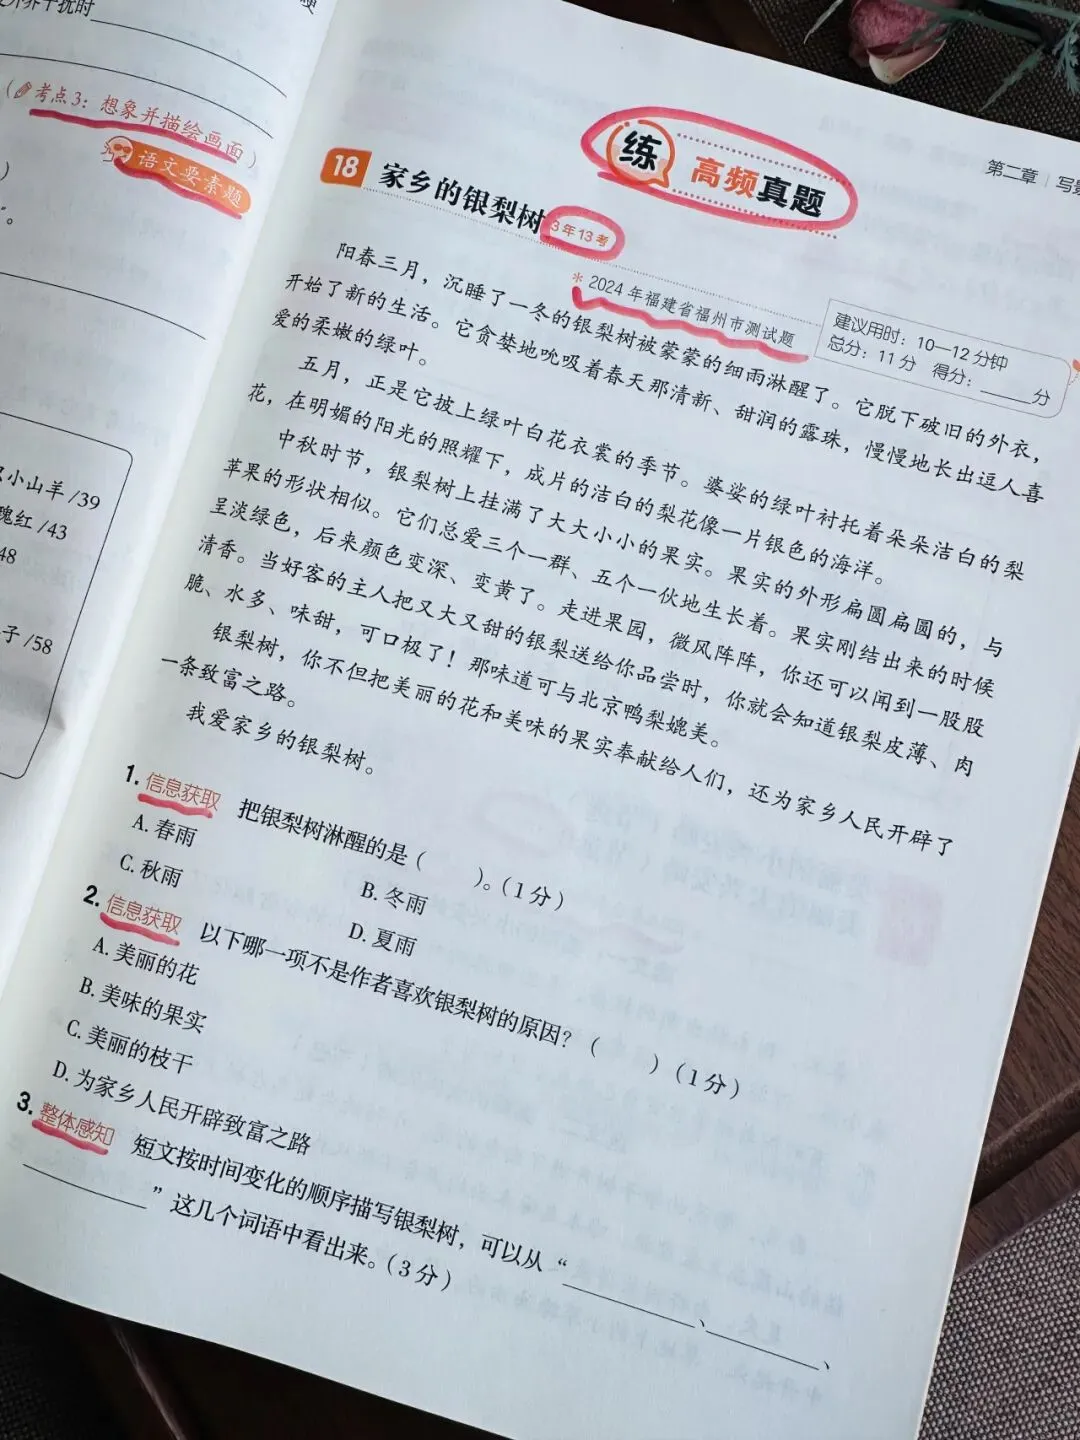 外界干扰时
(考点3：想象并描绘画面)
语文要素题
小山羊 /39
瑰红 /43
48
子 /58
第二章 | 写景
练 高频真题
18 家乡的银梨树 3年13考
* 2024年福建省福州市测试题
建议用时：10—12分钟
总分：11分 得分：______分
阳春三月，沉睡了一冬的银梨树被蒙蒙的细雨淋醒了。它脱下破旧的外衣，
开始了新的生活。它贪婪地吮吸着春天那清新、甜润的露珠，慢慢地长出逗人喜
爱的柔嫩的绿叶。
五月，正是它披上绿叶白花衣裳的季节。婆娑的绿叶衬托着朵朵洁白的梨
花，在明媚的阳光的照耀下，成片的洁白的梨花像一片银色的海洋。
中秋时节，银梨树上挂满了大大小小的果实。果实的外形扁圆扁圆的，与
苹果的形状相似。它们总爱三个一群、五个一伙地生长着。果实刚结出来的时候
呈淡绿色，后来颜色变深、变黄了。走进果园，微风阵阵，你还可以闻到一股股
清香。当好客的主人把又大又甜的银梨送给你品尝时，你就会知道银梨皮薄、肉
脆、水多、味甜，可口极了！那味道可与北京鸭梨媲美。
银梨树，你不但把美丽的花和美味的果实奉献给人们，还为家乡人民开辟了
一条致富之路。
我爱家乡的银梨树。
1. 信息获取 把银梨树淋醒的是（ ）。（1分）
A. 春雨 B. 冬雨
C. 秋雨 D. 夏雨
2. 信息获取 以下哪一项不是作者喜欢银梨树的原因？（ ）（1分）
A. 美丽的花
B. 美味的果实
C. 美丽的枝干
D. 为家乡人民开辟致富之路
3. 整体感知 短文按时间变化的顺序描写银梨树，可以从“______、______、
______”这几个词语中看出来。（3分）